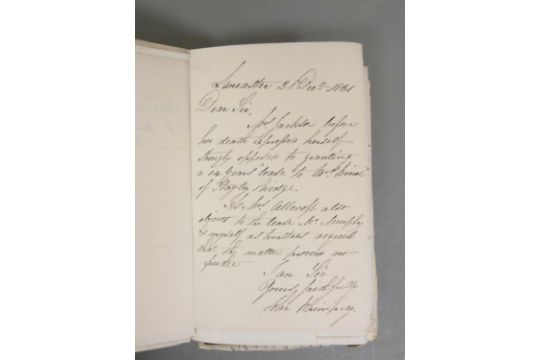 Lancaster 21 Decr. 1881
Dear Sir,
Mrs Jackson before
her death expressed herself
strongly opposed to granting
a 14 years lease to Mr.
of Stayley Bridge.
As Mrs. Allcroft also
objects to the lease Mr.
& myself as trustees request
that the matter proceed no
further
I am Sir
Yours faithfully
John